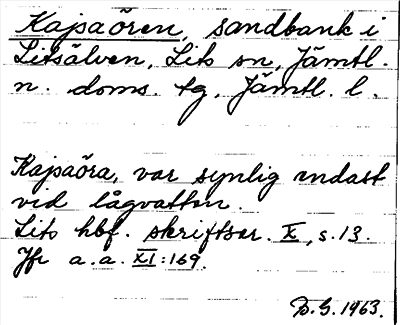 Kajsaören, sandbank i
Litsälven, Lits sn, Jämtl.
n. doms. tg, Jämtl. l.
Kajsaöra, var synlig endast
vid lågvatten.
Lits hbf. skriftser. X, s. 13.
Jfr a.a. XI:169.
D.G. 1963.